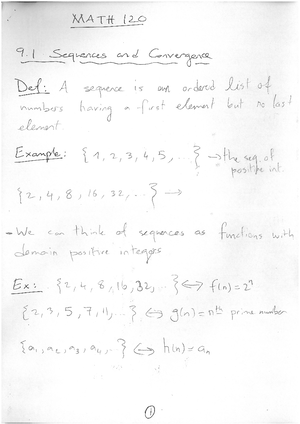 MATH 120
9.1 Sequences and Convergence
Def: A sequence is an ordered list of
numbers having a first element but no last
element
Example: {1, 2, 3, 4, 5, ...} → the seq. of
positive int.
{2, 4, 8, 16, 32, ...} →
- We can think of sequences as functions with
domain positive integers
Ex: {2, 4, 8, 16, 32, ...} ↔ f(n) = 2ⁿ
{2, 3, 5, 7, 11, ...} ↔ g(n) = nth prime number
{a₁, a₂, a₃, a₄, ...} ↔ h(n) = aₙ
1